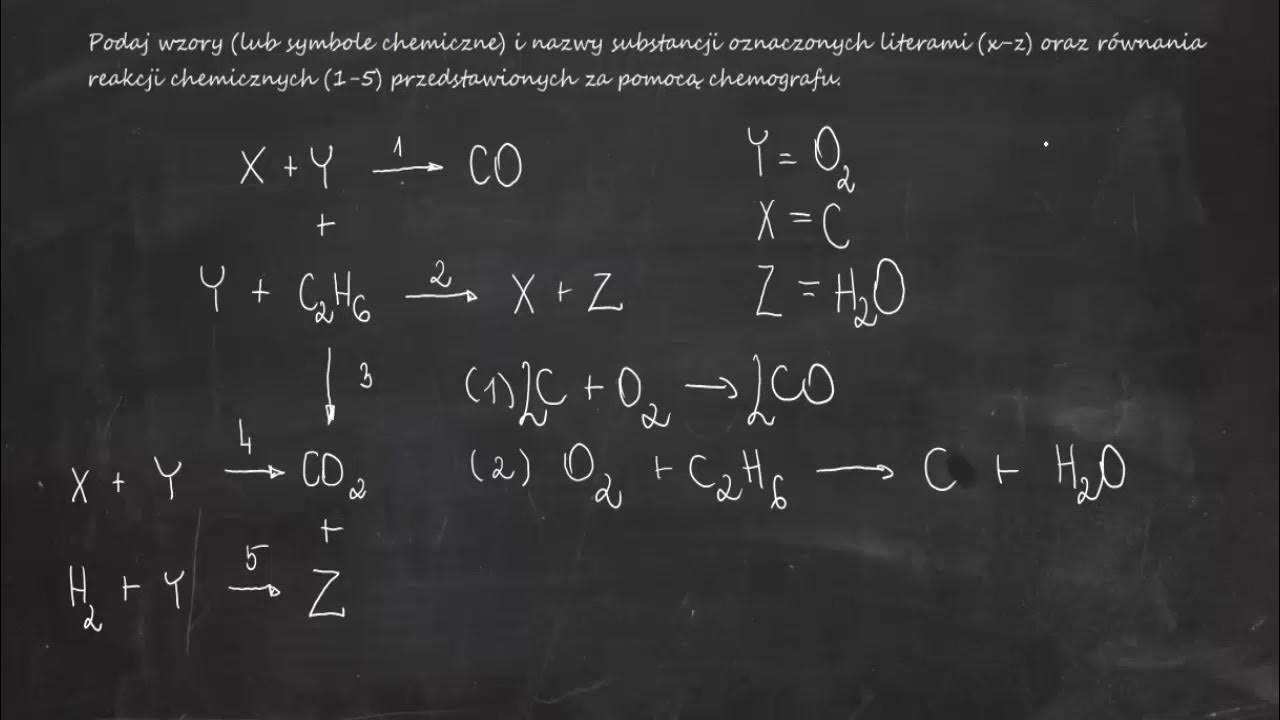 Podaj wzory (lub symbole chemiczne) i nazwy substancji oznaczonych literami (x-z) oraz równania
reakcji chemicznych (1-5) przedstawionych za pomocą chemografu.
X + Y →1 CO
+
Y + C₂H₆ →2 X + Z
↓ 3
X + Y →4 CO₂
+
H₂ + Y →5 Z
Y = O₂
X = C
Z = H₂O
(1) 2C + O₂ → 2CO
(2) O₂ + C₂H₆ → C + H₂O